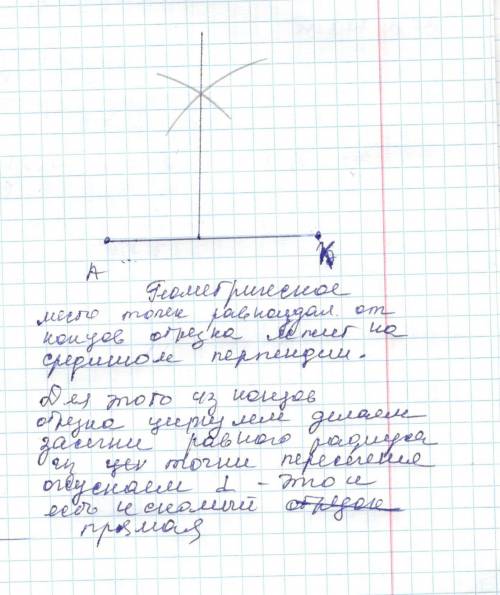 А К
Геометрическое
место точек равноудал. от
концов отрезка лежит на
срединном перпендик.
Для этого из концов
отрезка циркулем делаем
засечки равного радиуса
из точки пересечения
опускаем ⊥ - это и
есть искомый отрезок
прямая